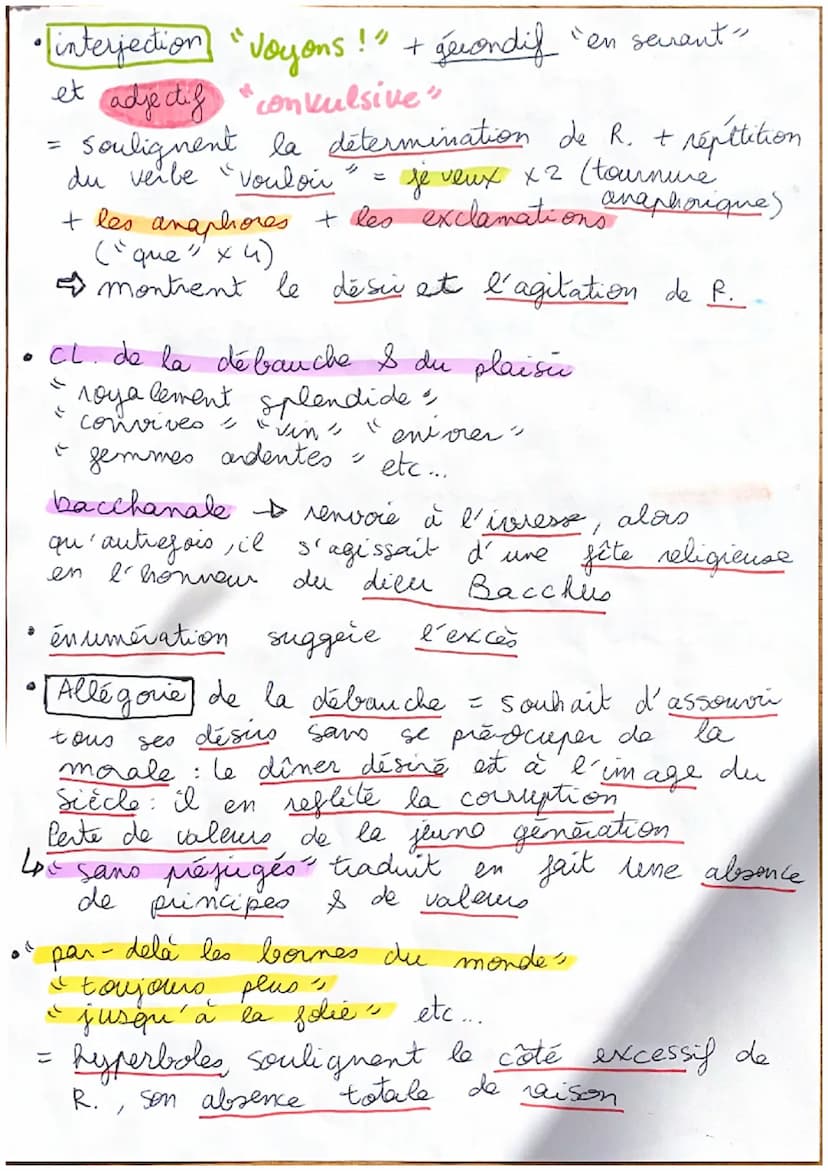 • interjection "voyons !" + gérondif "en serrant"
et adjectif "convulsive"
= soulignent la détermination de R. + répétition
du verbe "vouloir" = je veux x2 (tournure
anaphorique)
+ les anaphores + les exclamations
("que" x 4)
⇨ montrent le désir et l'agitation de R.
• CL. de la débauche & du plaisir
"royalement splendide"
"convives" "vin" "enivrer"
"gemmes ardentes" etc...
bacchanale → renvoie à l'ivresse, alors
qu'autrefois, il s'agissait d'une fête religieuse
en l'honneur du dieu Bacchus
• énumération suggère l'excès
• Allégorie de la débauche = souhait d'assouvir
tous ses désirs sans se préocuper de la
morale : le dîner désiré est à l'image du
siècle : il en reflète la corruption
Perte de valeurs de la jeune génération
↳ "sans préjugés" traduit en fait une absence
de principes & de valeurs
• "par-delà les bornes du monde"
"toujours plus"
"jusqu'à la folie" etc...
= hyperboles, soulignent le côté excessif de
R., son absence totale de raison